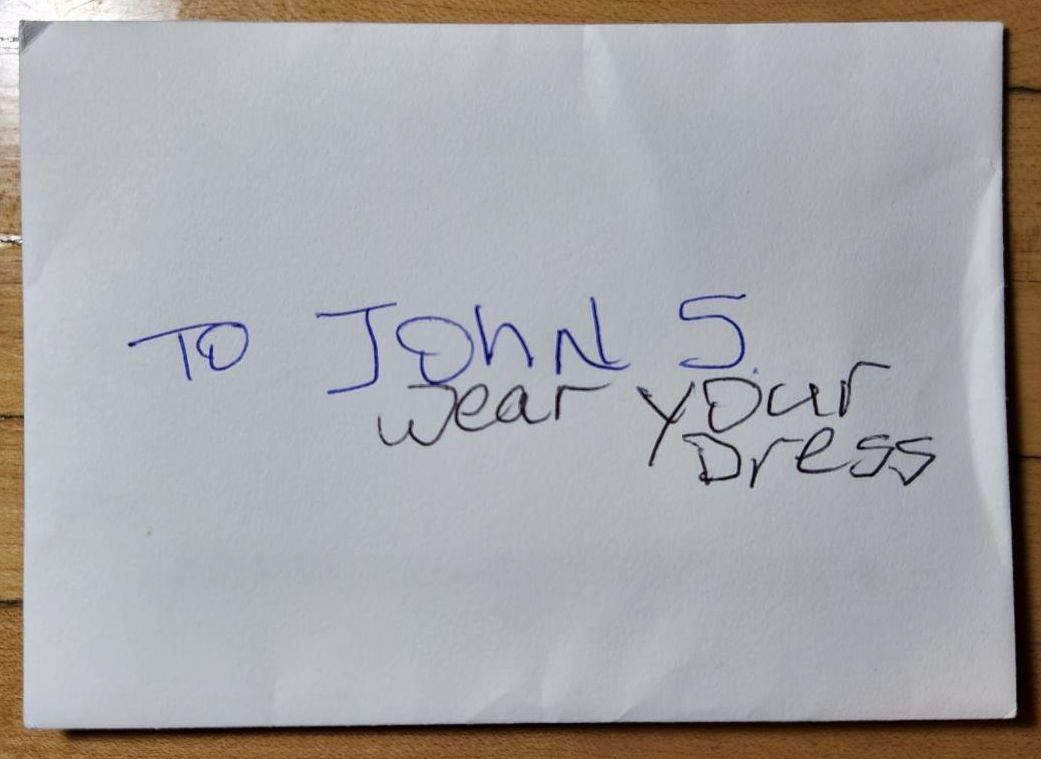 TO JOhN S.
wear your
Dress